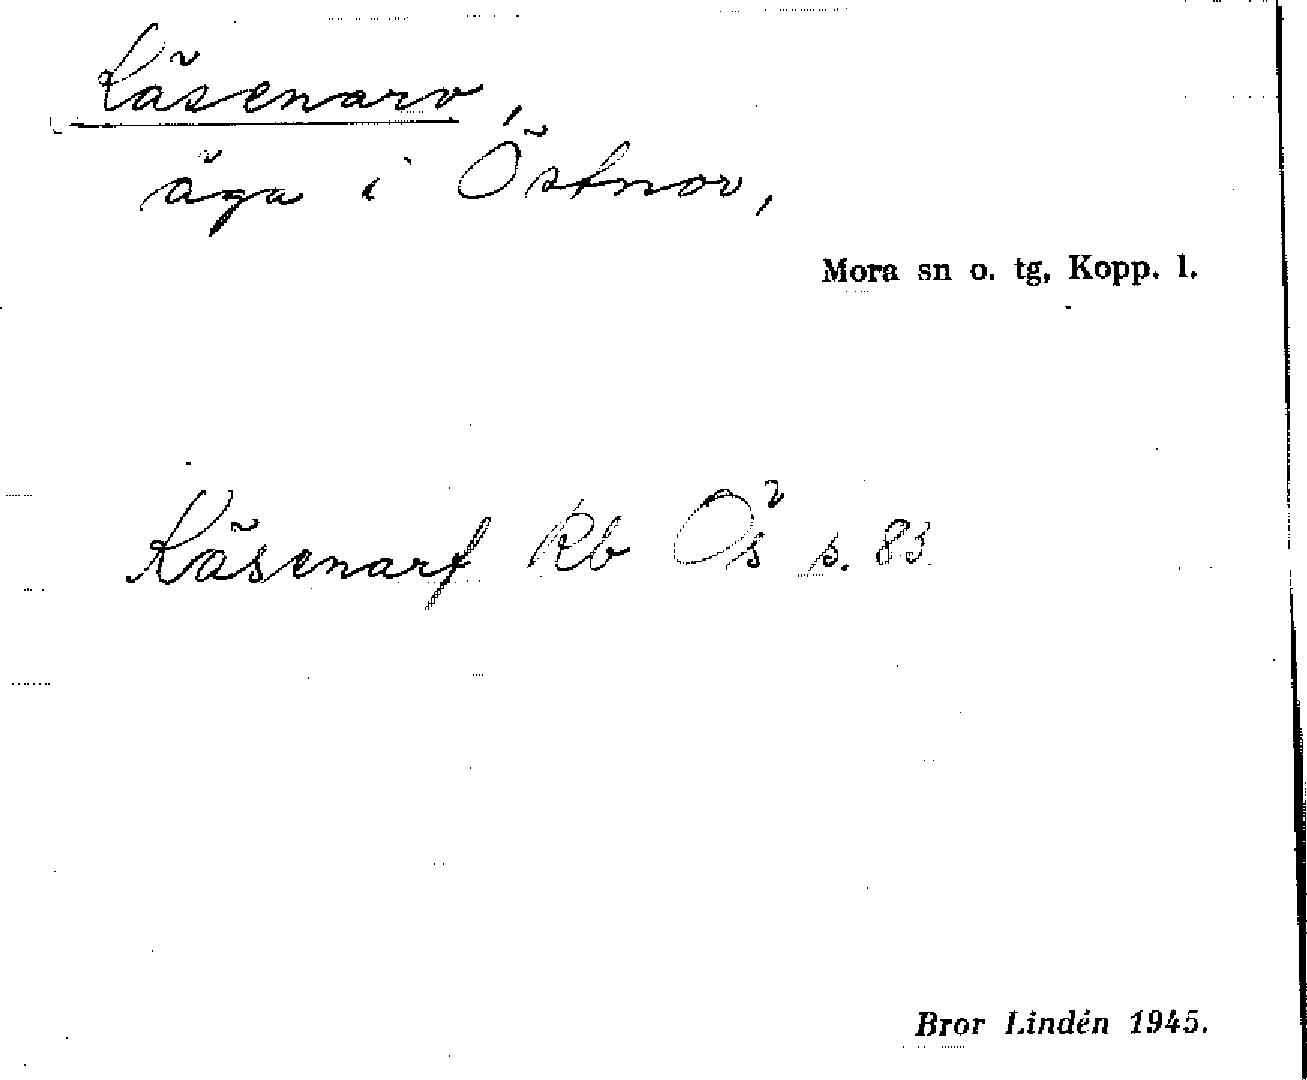 Käsenarv,
äga i Östnor,
Mora sn o. tg, Kopp. l.
Käsenarf Rb Ös s. 83
Bror Lindén 1945.